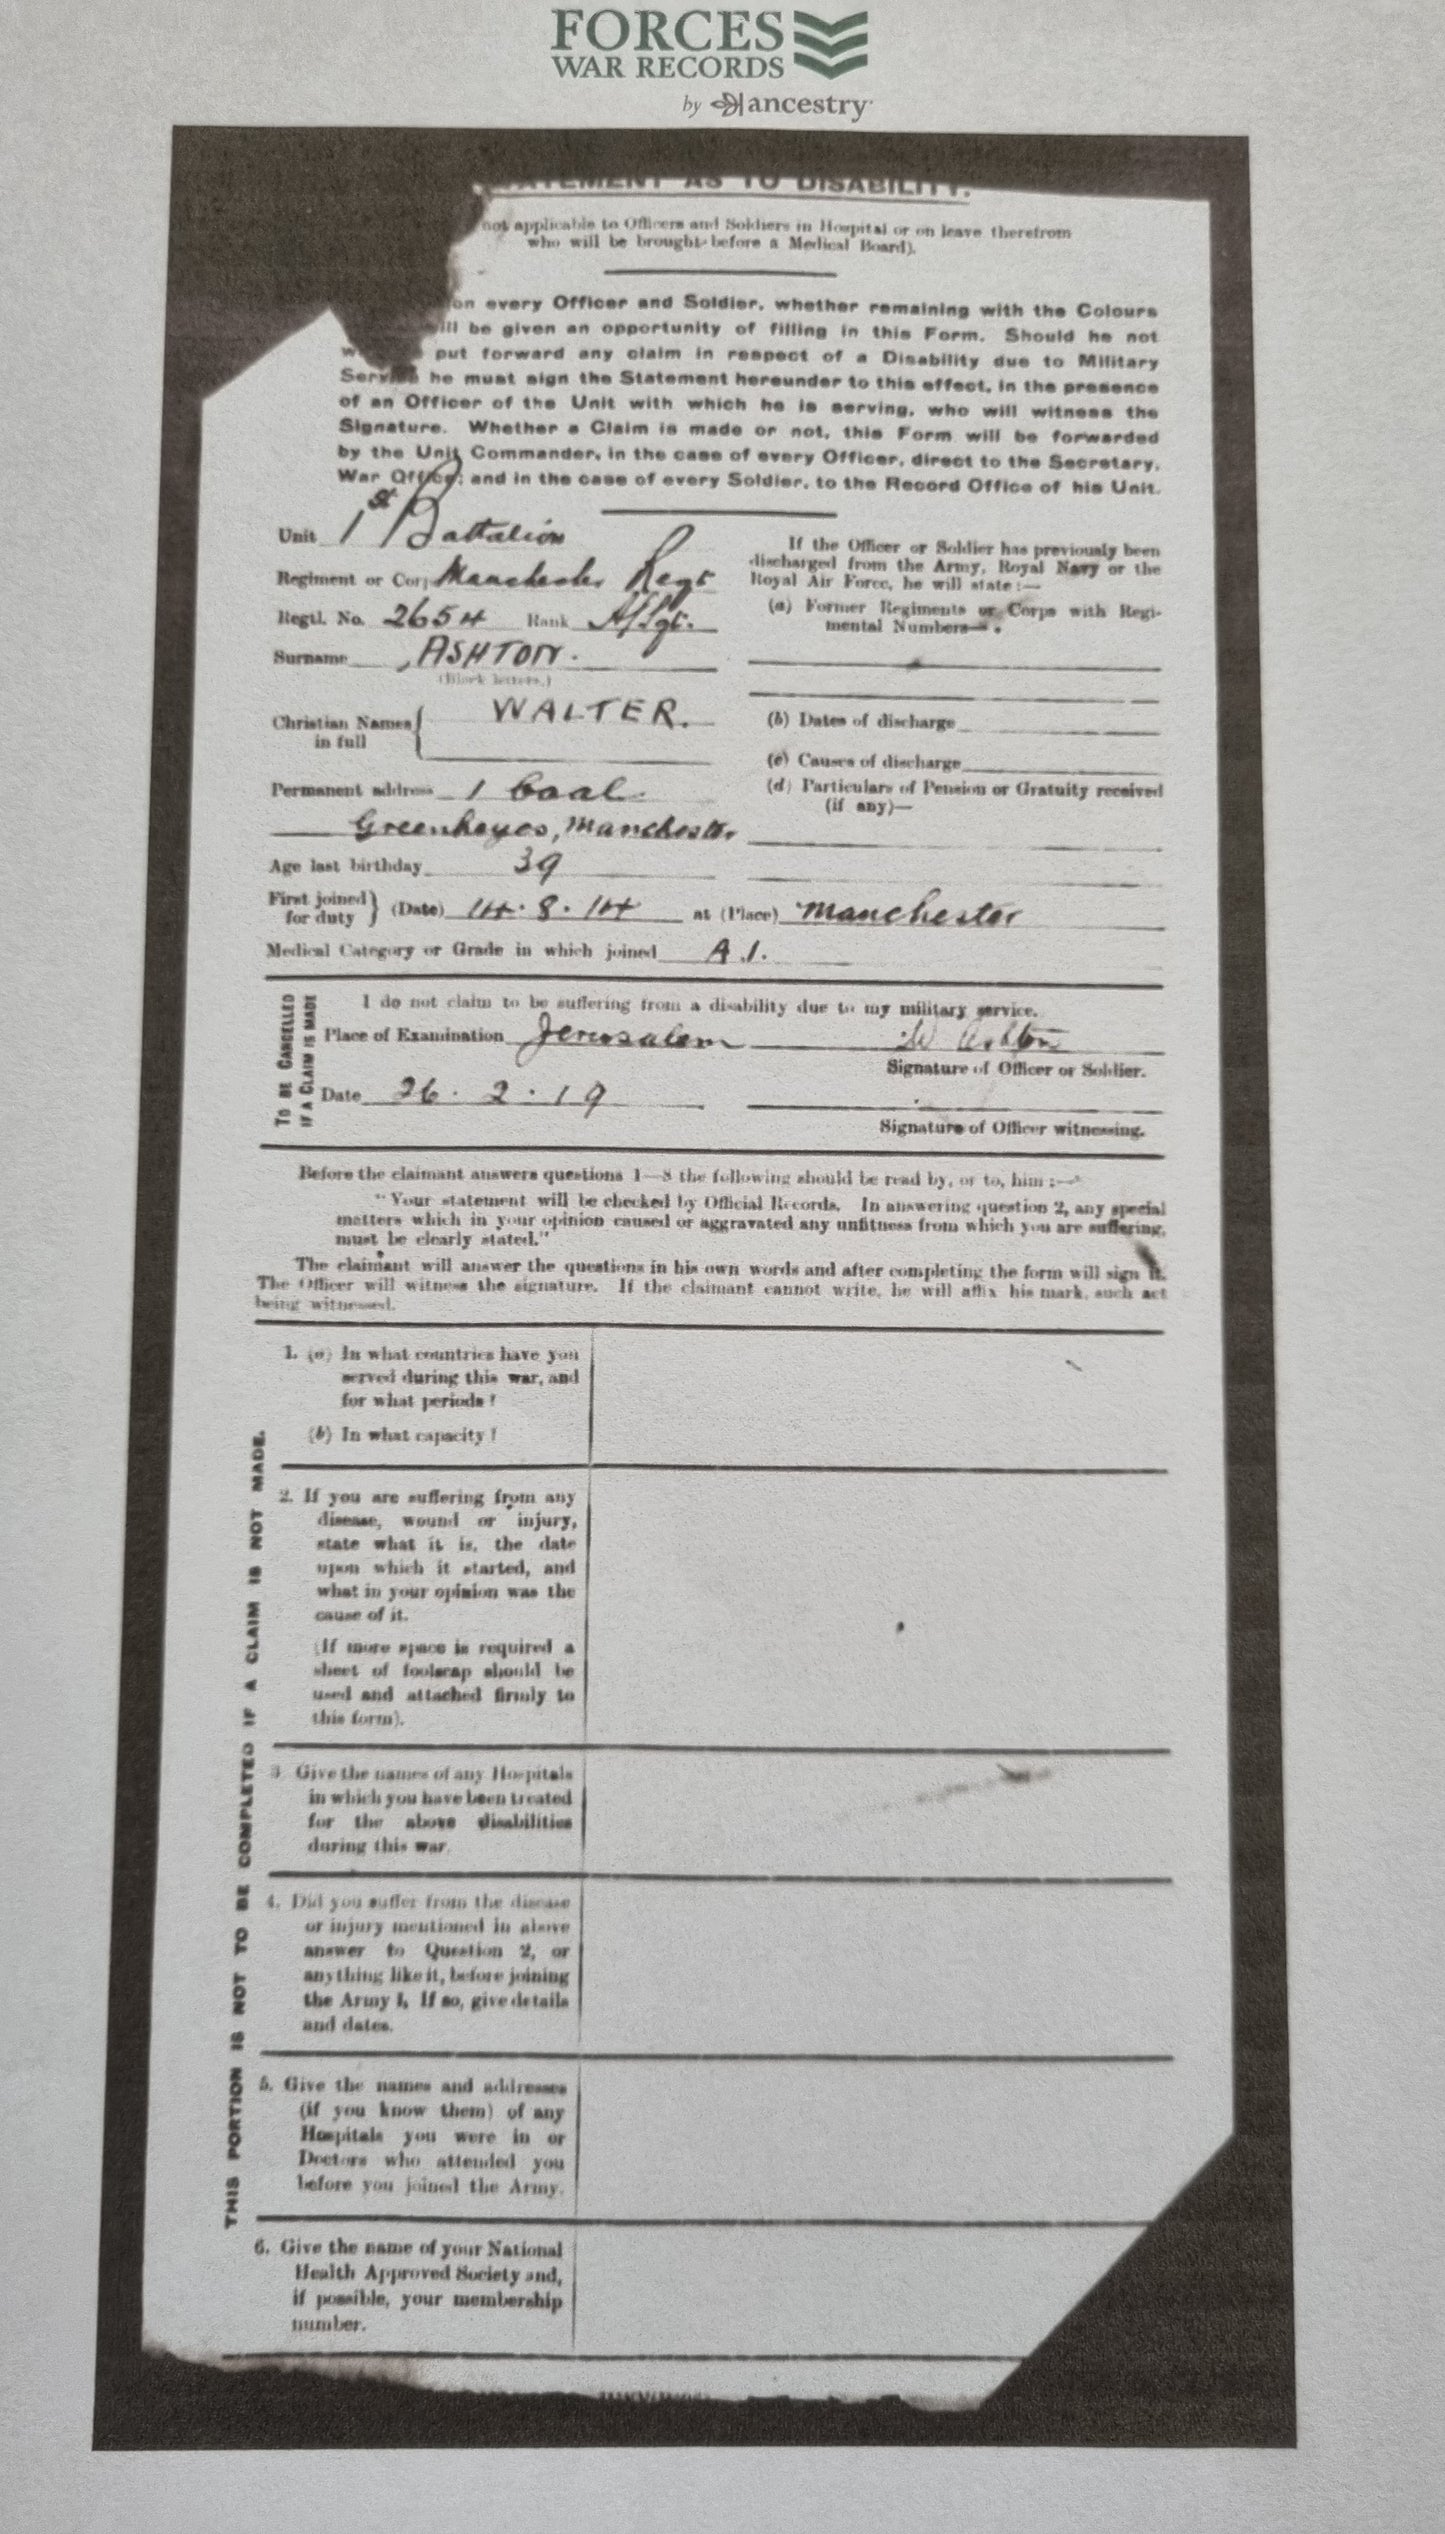 FORCES
WAR RECORDS
by ancestry
STATEMENT AS TO DISABILITY.
not applicable to Officers and Soldiers in Hospital or on leave therefrom
who will be brought before a Medical Board).
on every Officer and Soldier, whether remaining with the Colours
ill be given an opportunity of filling in this Form. Should he not
put forward any claim in respect of a Disability due to Military
Service he must sign the Statement hereunder to this effect, in the presence
of an Officer of the Unit with which he is serving, who will witness the
Signature. Whether a Claim is made or not, this Form will be forwarded
by the Unit Commander, in the case of every Officer, direct to the Secretary,
War Office; and in the case of every Soldier, to the Record Office of his Unit.
Unit 1st Battalion
Regiment or Corps Manchester Regt
Regtl. No. 2654 Rank A/Sgt.
Surname ASHTON.
(Block letters.)
Christian Names WALTER.
in full
Permanent address 1 Coal
Greenheyes, Manchester
Age last birthday 39
If the Officer or Soldier has previously been
discharged from the Army, Royal Navy or the
Royal Air Force, he will state :—
(a) Former Regiments or Corps with Regi-
mental Numbers— .
(b) Dates of discharge
(c) Causes of discharge
(d) Particulars of Pension or Gratuity received
(if any)—
First joined for duty } (Date) 14. 8. 14 at (Place) Manchester
Medical Category or Grade in which joined A.1.
TO BE CANCELLED
IF A CLAIM IS MADE
I do not claim to be suffering from a disability due to my military service.
Place of Examination Jerusalem W Ashton
Signature of Officer or Soldier.
Date 26. 2. 19
Signature of Officer witnessing.
Before the claimant answers questions 1—8 the following should be read by, or to, him :—
"Your statement will be checked by Official Records. In answering question 2, any special
matters which in your opinion caused or aggravated any unfitness from which you are suffering,
must be clearly stated."
The claimant will answer the questions in his own words and after completing the form will sign it.
The Officer will witness the signature. If the claimant cannot write, he will affix his mark, such act
being witnessed.
THIS PORTION IS NOT TO BE COMPLETED IF A CLAIM IS NOT MADE.
1. (a) In what countries have you
served during this war, and
for what periods?
(b) In what capacity?
2. If you are suffering from any
disease, wound or injury,
state what it is, the date
upon which it started, and
what in your opinion was the
cause of it.
(If more space is required a
sheet of foolscap should be
used and attached firmly to
this form).
3 Give the names of any Hospitals
in which you have been treated
for the above disabilities
during this war.
4. Did you suffer from the disease
or injury mentioned in above
answer to Question 2, or
anything like it, before joining
the Army?. If so, give details
and dates.
5. Give the names and addresses
(if you know them) of any
Hospitals you were in or
Doctors who attended you
before you joined the Army.
6. Give the name of your National
Health Approved Society and,
if possible, your membership
number.